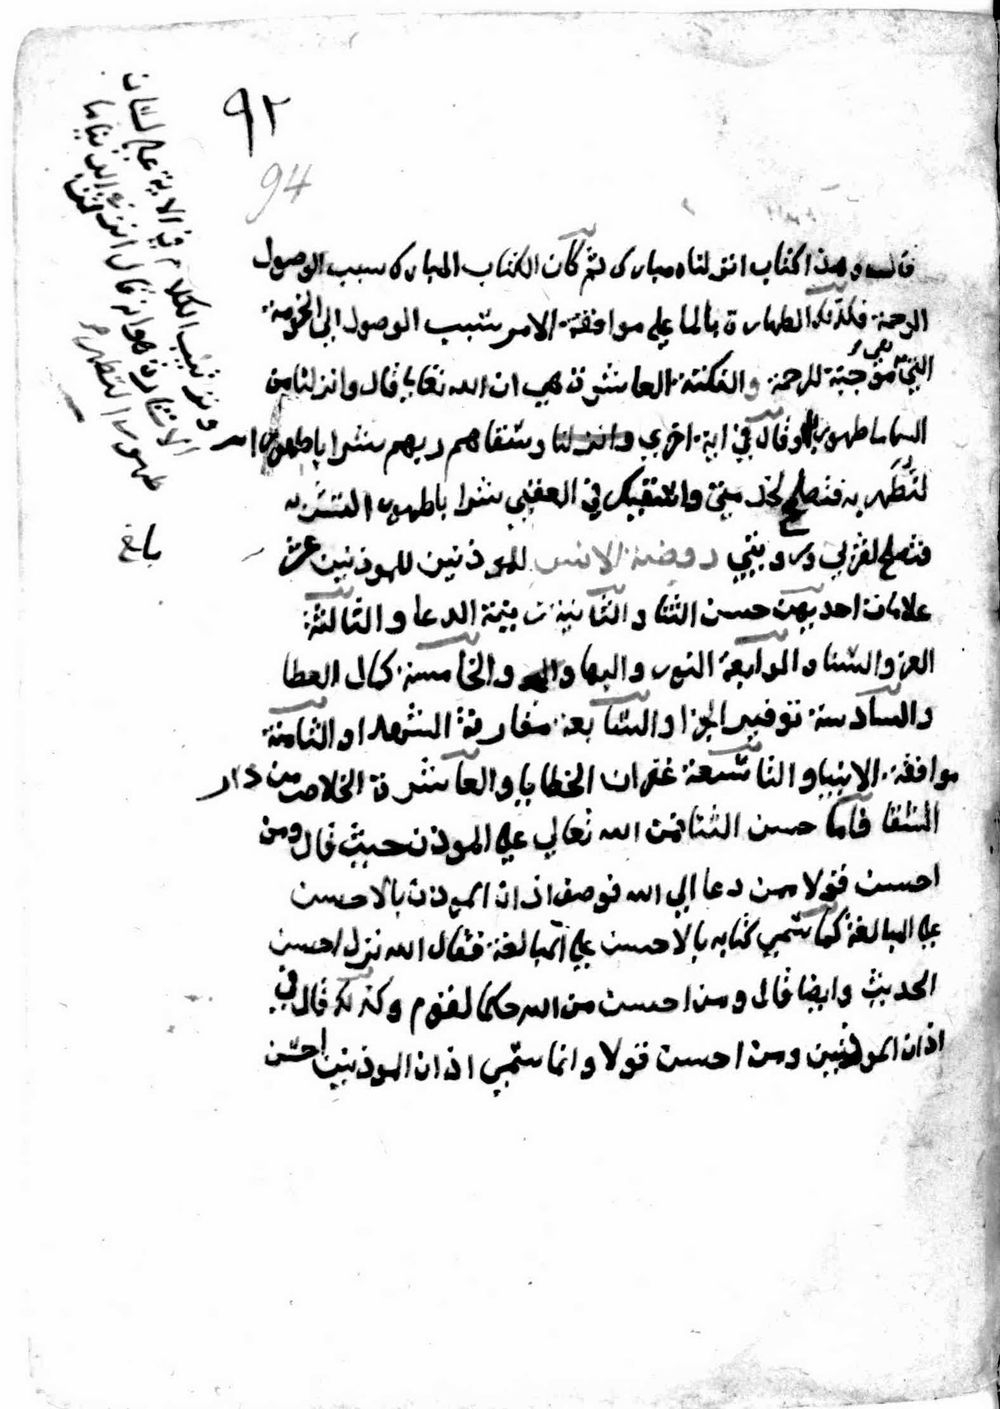 ٩٢
94
قال وهذا كتاب انزلناه مبارك ثم كان الكتاب المبارك سبب الوصول
الرحمة فكذلك الطهارة بالما على موافقة الامر سبب الوصول الى الخدمة
التي هي موجبة للرحمة والنكتة العاشرة هي ان الله تعالى قال وانزلنا من
السما ما طهورا وقال في اية اخرى وانزلنا وسقاهم ربهم شرابا طهورا
لتطهر به فتصلح لخدمتي واسقيك في العقبى شرابا طهورا لتشربه
فتصلح لقربي ورويتي روضة الانس للموذنين للموذنين عشر
علامات احديهن حسن الثنا والثانية تتمة الدعا والثالثة
العز والسنا والرابعة النور والبها والخامسة كمال العطا
والسادسة توفير الجزا والسابعة مقارنة الشهدا والثامنة
موافقة الانبيا والتاسعة غفران الخطايا والعاشرة الخلاص من دار
الشقا فاما حسن الثنا فمن الله تعالى على الموذن حيث قال ومن
احسن قولا ممن دعا الى الله فوصف اذان الموذن بالاحسن
على المبالغة كما سمى كتابه بالاحسن على المبالغة فقال الله نزل احسن
الحديث وايضا قال ومن احسن من الله حكما لقوم وكذلك قال في
اذان الموذنين ومن احسن قولا وانما سمى اذان الموذنين احسن
وترتيب الكلام في الاية على لسان
الاشارة هو انه قال انزلت اليك في الدنيا ما
طهورا لتطهر
بلغ